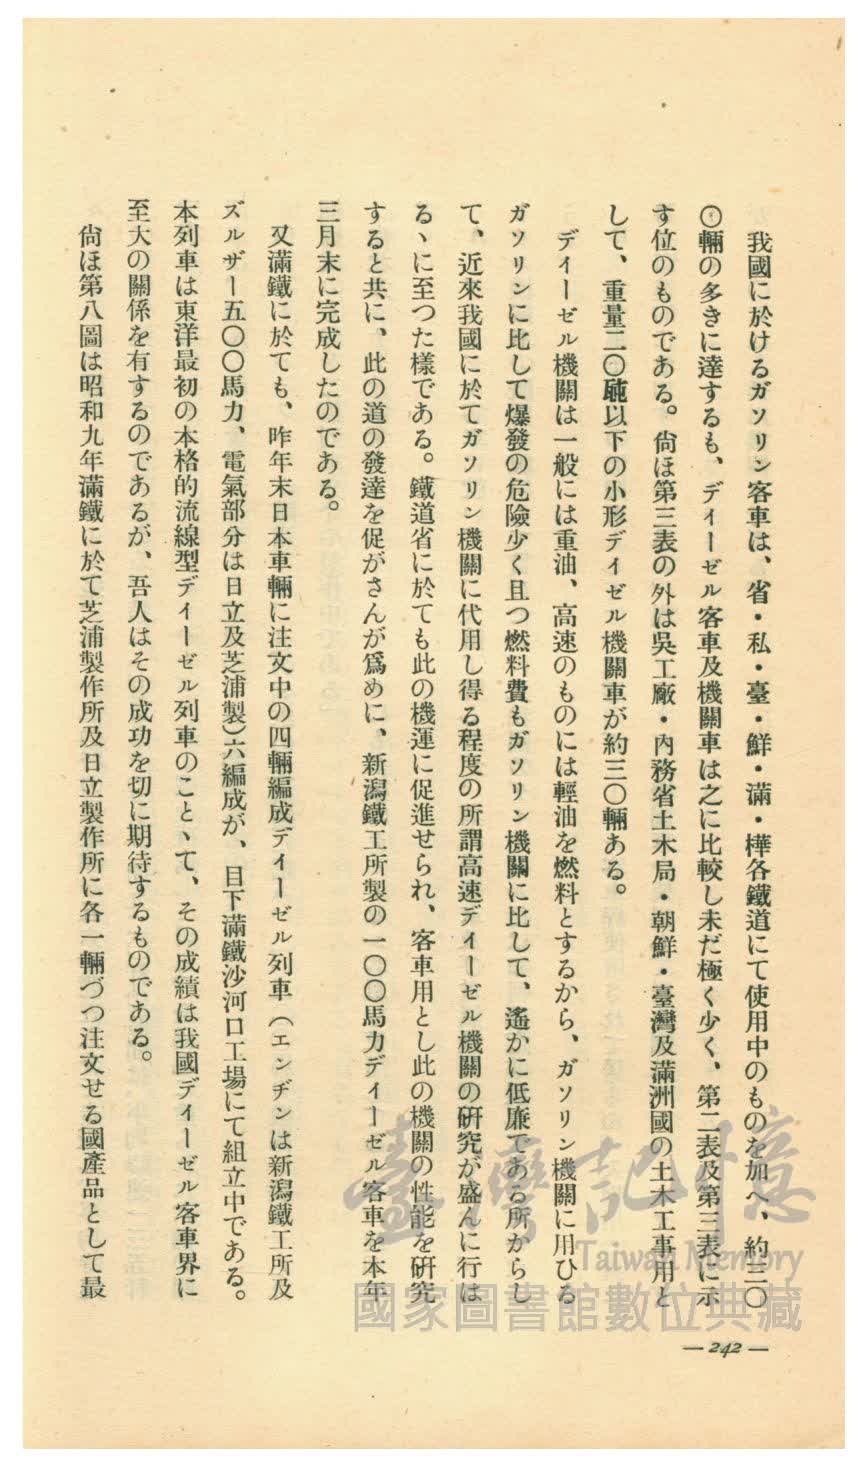 我國に於けるガソリン客車は、省・私・臺・鮮・滿・樺各鐵道にて使用中のものを加へ、約三〇
〇輛の多きに達するも、ディーゼル客車及機關車は之に比較し未だ極く少く、第二表及第三表に示
す位のものである。尙ほ第三表の外は吳工廠・內務省土木局・朝鮮・臺灣及滿洲國の土木工事用と
して、重量二〇瓲以下の小形ディゼル機關車が約三〇輛ある。
ディーゼル機關は一般には重油、高速のものには輕油を燃料とするから、ガソリン機關に用ひる
ガソリンに比して爆發の危險少く且つ燃料費もガソリン機關に比して、遙かに低廉である所からし
て、近來我國に於てガソリン機關に代用し得る程度の所謂高速ディーゼル機關の硏究が盛んに行は
るゝに至つた樣である。鐵道省に於ても此の機運に促進せられ、客車用とし此の機關の性能を硏究
すると共に、此の道の發達を促がさんが爲めに、新潟鐵工所製の一〇〇馬力ディーゼル客車を本年
三月末に完成したのである。
又滿鐵に於ても、昨年末日本車輛に注文中の四輛編成ディーゼル列車（エンヂンは新潟鐵工所及
ズルザー五〇〇馬力、電氣部分は日立及芝浦製）六編成が、目下滿鐵沙河口工場にて組立中である。
本列車は東洋最初の本格的流線型ディーゼル列車のことゝて、その成績は我國ディーゼル客車界に
至大の關係を有するのであるが、吾人はその成功を切に期待するものである。
尙ほ第八圖は昭和九年滿鐵に於て芝浦製作所及日立製作所に各一輛づつ注文せる國產品として最
— 242 —
臺灣記憶
Taiwan Memory
國家圖書館數位典藏